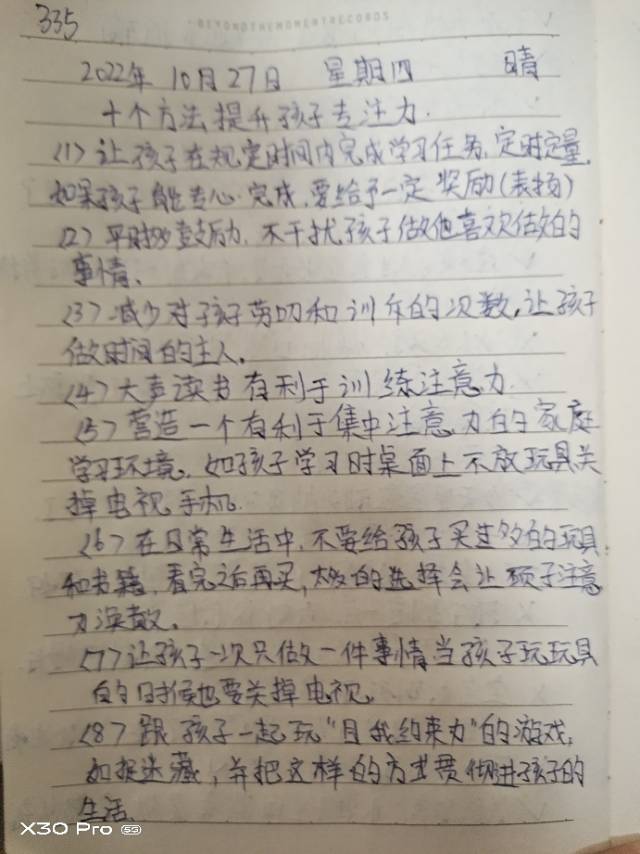 335
BEYONDTHEMOMENTRECORDS
2022年 10月27日 星期四 晴
十个方法提升孩子专注力.
(1) 让孩子在规定时间内完成学习任务,定时定量,
如果孩子能专心完成,要给予一定奖励(表扬)
(2) 平时多鼓励,不干扰孩子做他喜欢做的
事情、
(3) 减少对孩子劳叨和训斥的次数,让孩子
做时间的主人。
(4) 大声读书有利于训练注意力.
(5) 营造一个有利于集中注意力的家庭
学习环境。如孩子学习时桌面上不放玩具关
掉电视手机.
(6) 在日常生活中,不要给孩子买过多的玩具
和书籍,看完之后再买,太多的选择会让孩子注意
力涣散。
(7) 让孩子一次只做一件事情,当孩子玩玩具
的时候也要关掉电视。
(8) 跟孩子一起玩“自我约束力”的游戏,
如捉迷藏,并把这样的方式贯彻进孩子的
生活.
X30 Pro 5G